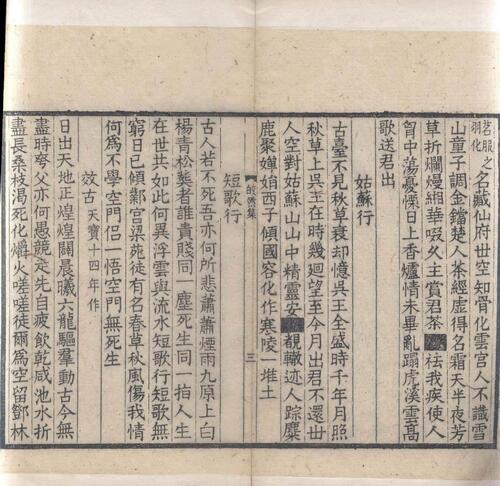 茗服之
羽化
名藏仙府世空知骨化雲宮人不識雪
山童子調金鐺楚人茶經虛得名霜天半夜芳
草折爛熳緗華啜久主賞君茶祛我疾使人
胷中蕩憂慄日上香爐情未畢亂蹋虎溪雲高
歌送君出
姑蘇行
古臺不見秋草衰却憶吳王全盛時千年月照
秋草上吳王在時幾迴望至今月出君不還世
人空對姑蘇山山中精靈安覩轍迹人踪麋
鹿聚嬋娟西子傾國容化作寒陵一堆土
集
三
短歌行
古人若不死吾亦何所悲蕭蕭煙雨九原上白
楊青松葬者誰貴賤同一塵死生同一指人生
在世共如此何異浮雲與流水短歌行短歌無
窮日已傾鄴宮梁苑徒有名春草秋風傷我情
何爲不學空門侶一悟空門無死生
效古 天寶十四年作
日出天地正煌煌闢晨曦六龍驅羣動古今無
盡時夸父亦何愚競走先自疲飲乾咸池水折
盡長桑枝渴死化爝火嗟嗟徒爾爲空留鄧林